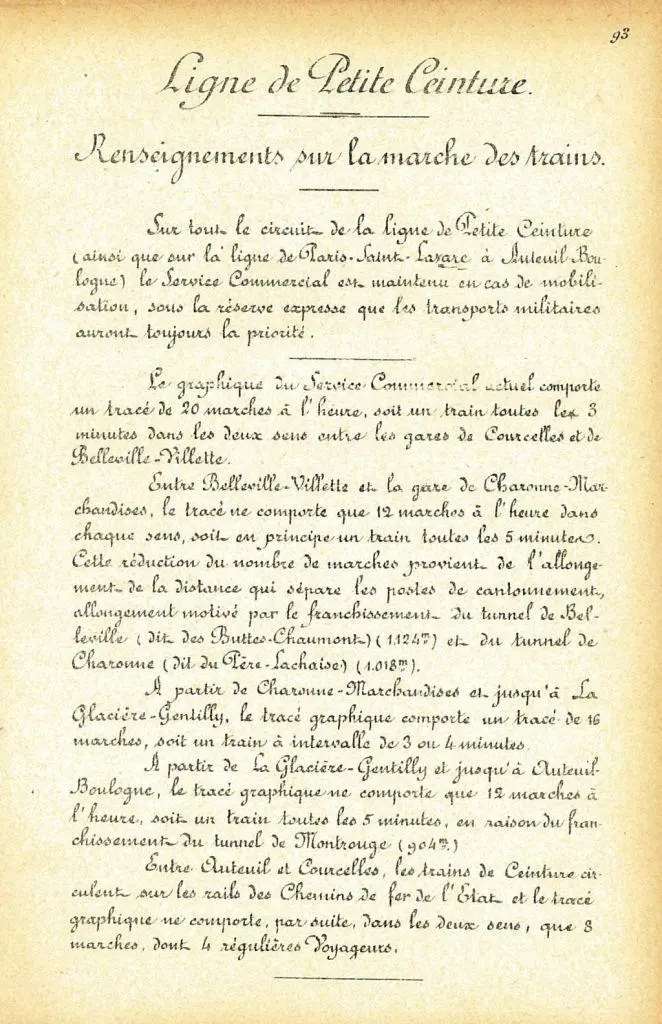 93
Ligne de Petite Ceinture.
Renseignements sur la marche des trains.
Sur tout le circuit de la ligne de Petite Ceinture
(ainsi que sur la ligne de Paris-Saint-Lazare à Auteuil-Bou-
logne) le Service Commercial est maintenu en cas de mobili-
sation, sous la réserve expresse que les transports militaires
auront toujours la priorité.
Le graphique du Service Commercial actuel comporte
un tracé de 20 marches à l'heure, soit un train toutes les 3
minutes dans les deux sens entre les gares de Courcelles et de
Belleville-Villette.
Entre Belleville-Villette et la gare de Charonne-Mar-
chandises, le tracé ne comporte que 12 marches à l'heure dans
chaque sens, soit en principe un train toutes les 5 minutes.
Cette réduction du nombre de marches provient de l'allonge-
ment de la distance qui sépare les postes de cantonnement,
allongement motivé par le franchissement du tunnel de Bel-
leville (dit des Buttes-Chaumont) (1.124m) et du tunnel de
Charonne (dit du Père-Lachaise) (1.018m).
A partir de Charonne-Marchandises et jusqu'à La
Glacière-Gentilly, le tracé graphique comporte un tracé de 16
marches, soit un train à intervalle de 3 ou 4 minutes.
A partir de La Glacière-Gentilly et jusqu'à Auteuil-
Boulogne, le tracé graphique ne comporte que 12 marches à
l'heure, soit un train toutes les 5 minutes, en raison du fran-
chissement du tunnel de Montrouge (904m)
Entre Auteuil et Courcelles, les trains de Ceinture cir-
culent sur les rails des Chemins de fer de l'Etat et le tracé
graphique ne comporte, par suite, dans les deux sens, que 8
marches, dont 4 régulières Voyageurs.